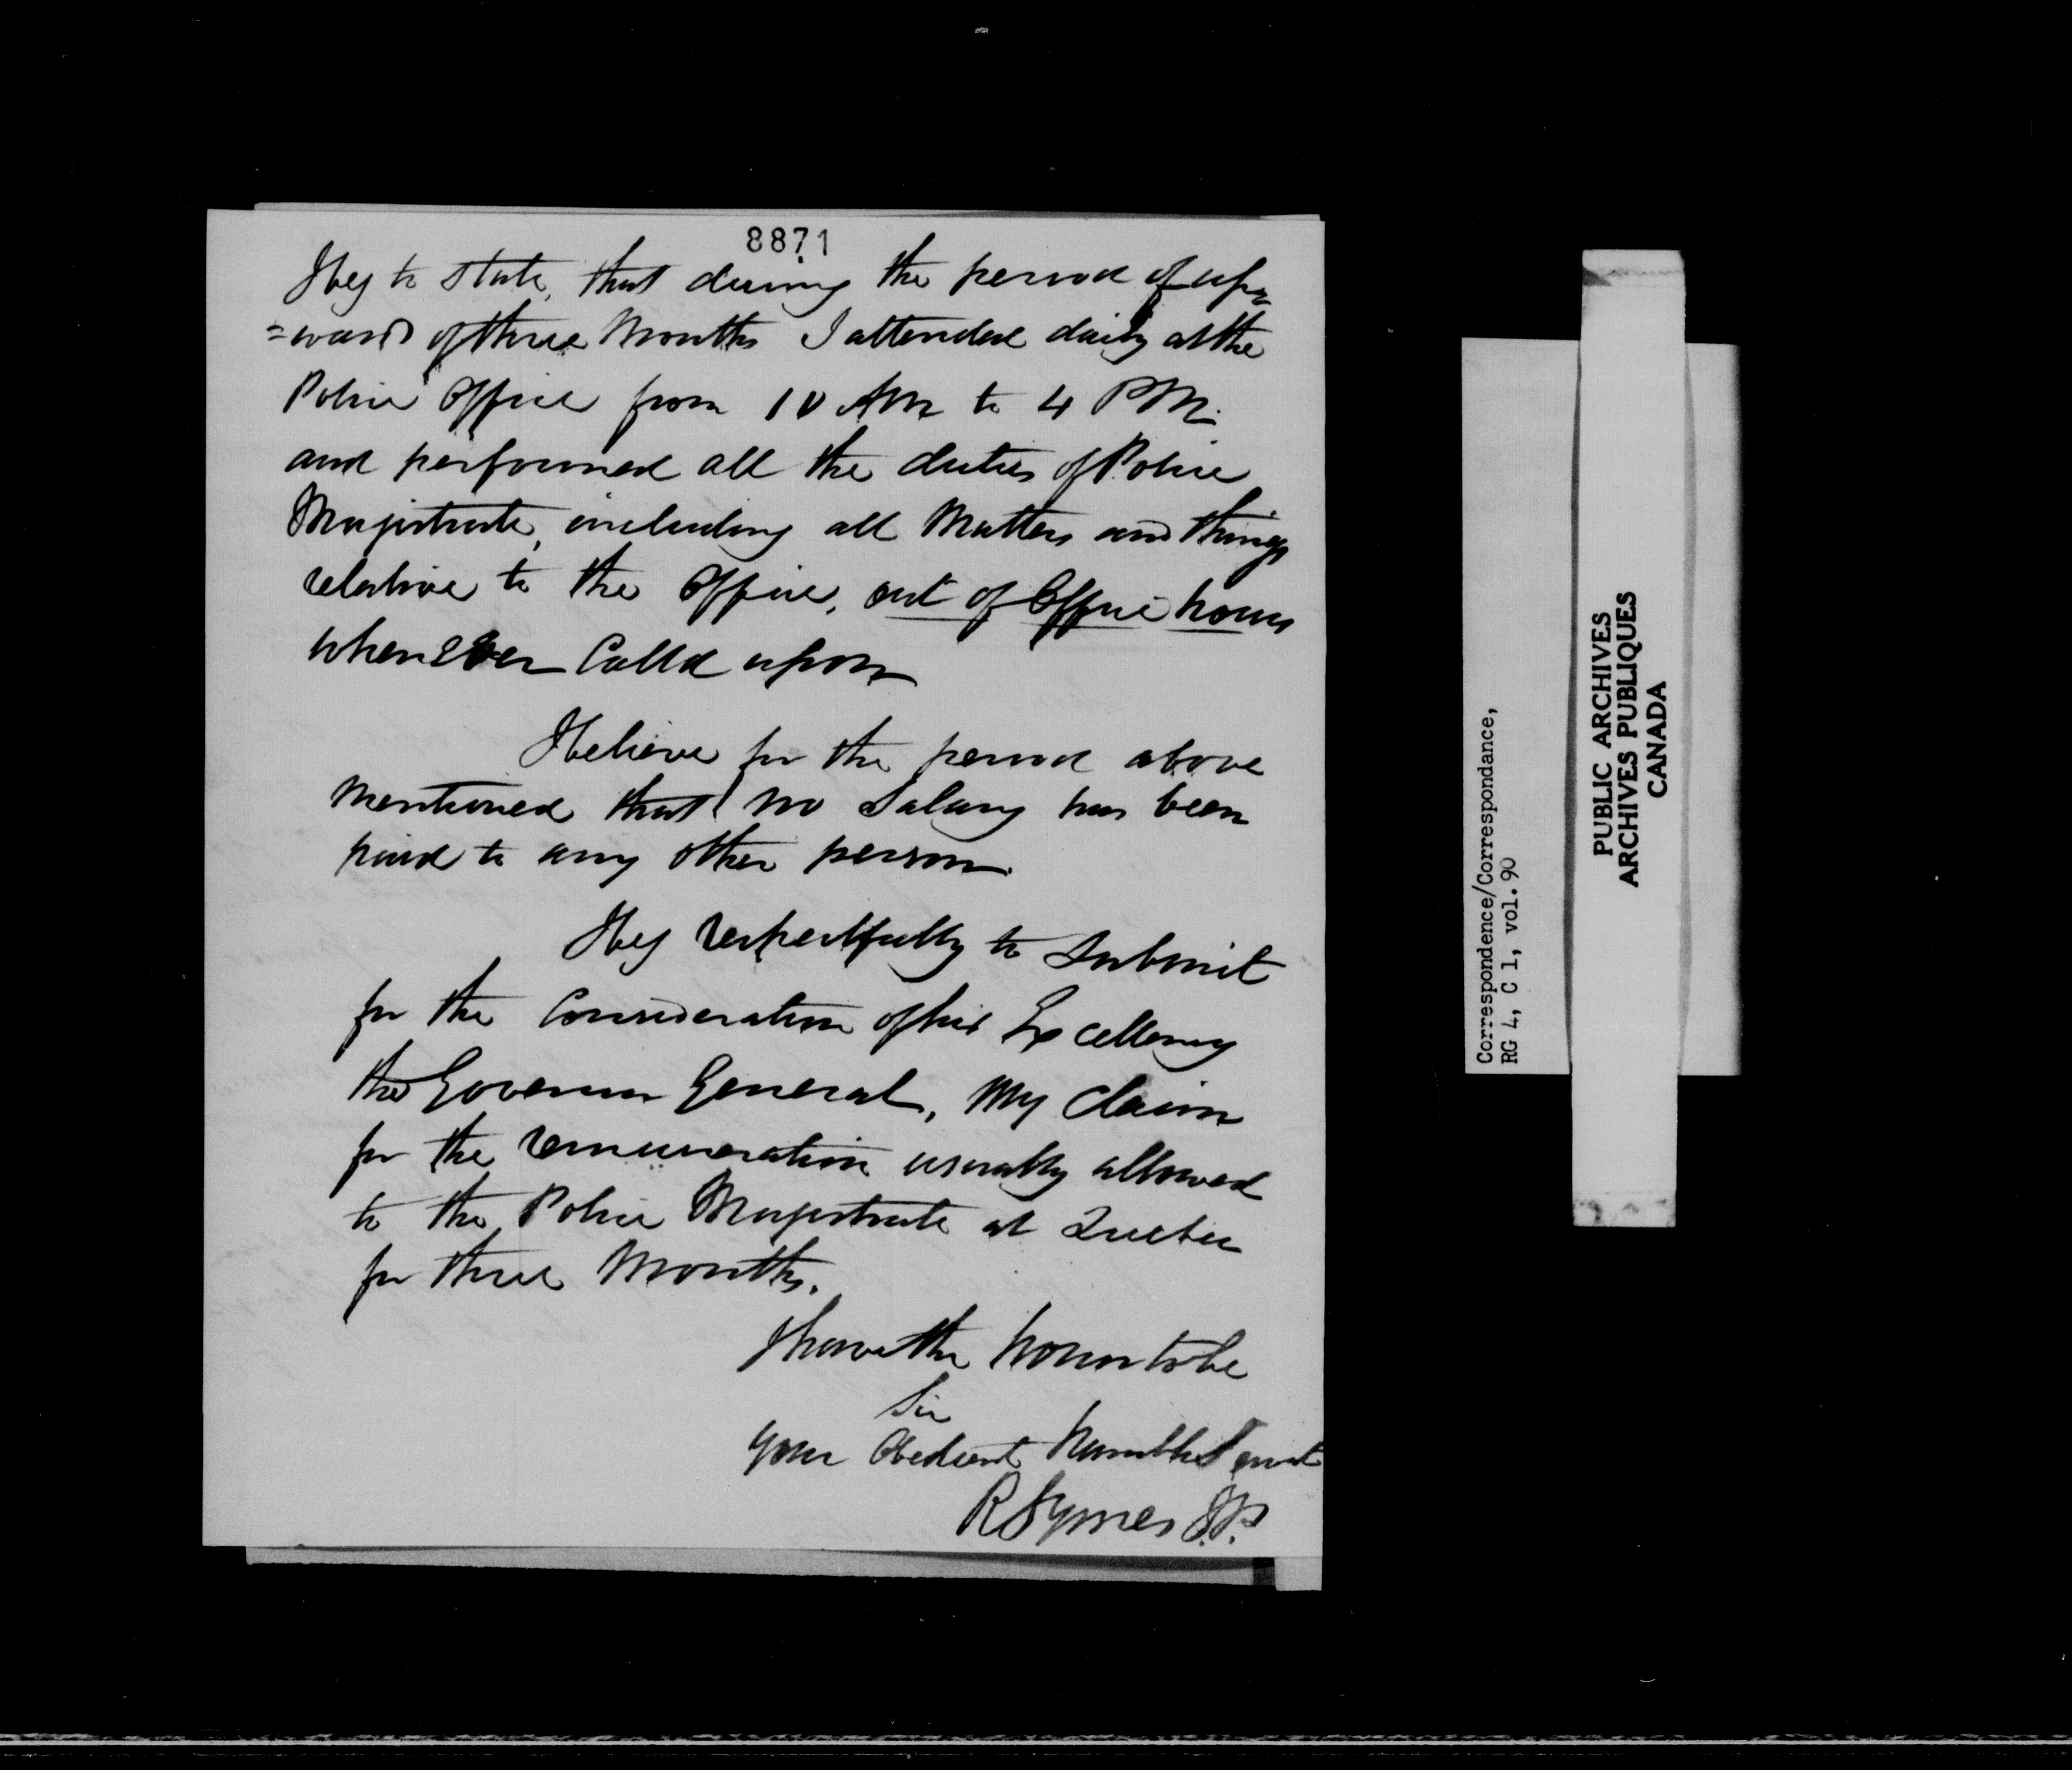 8871
I beg to state, that during the period of up=
=wards of three Months I attended daily at the
Police Office from 10 AM to 4 PM.
and performed all the duties of Police
Magistrate, including all Matters and things
relative to the Office, out of Office hours
whenever Calld upon
I believe for the period above
Mentioned that no Salary has been
paid to any other person.
I beg respectfully to Submit
for the Consideration of his Excellency
the Governor General, My Claim
for the remuneration usually allowed
to the Police Magistrate at Quebec
for three Months.
I have the honor to be
Sir
Your Obedient humble Servt
R Symes J.P.
Correspondence/Correspondance,
RG 4, C 1, vol. 90
PUBLIC ARCHIVES
ARCHIVES PUBLIQUES
CANADA